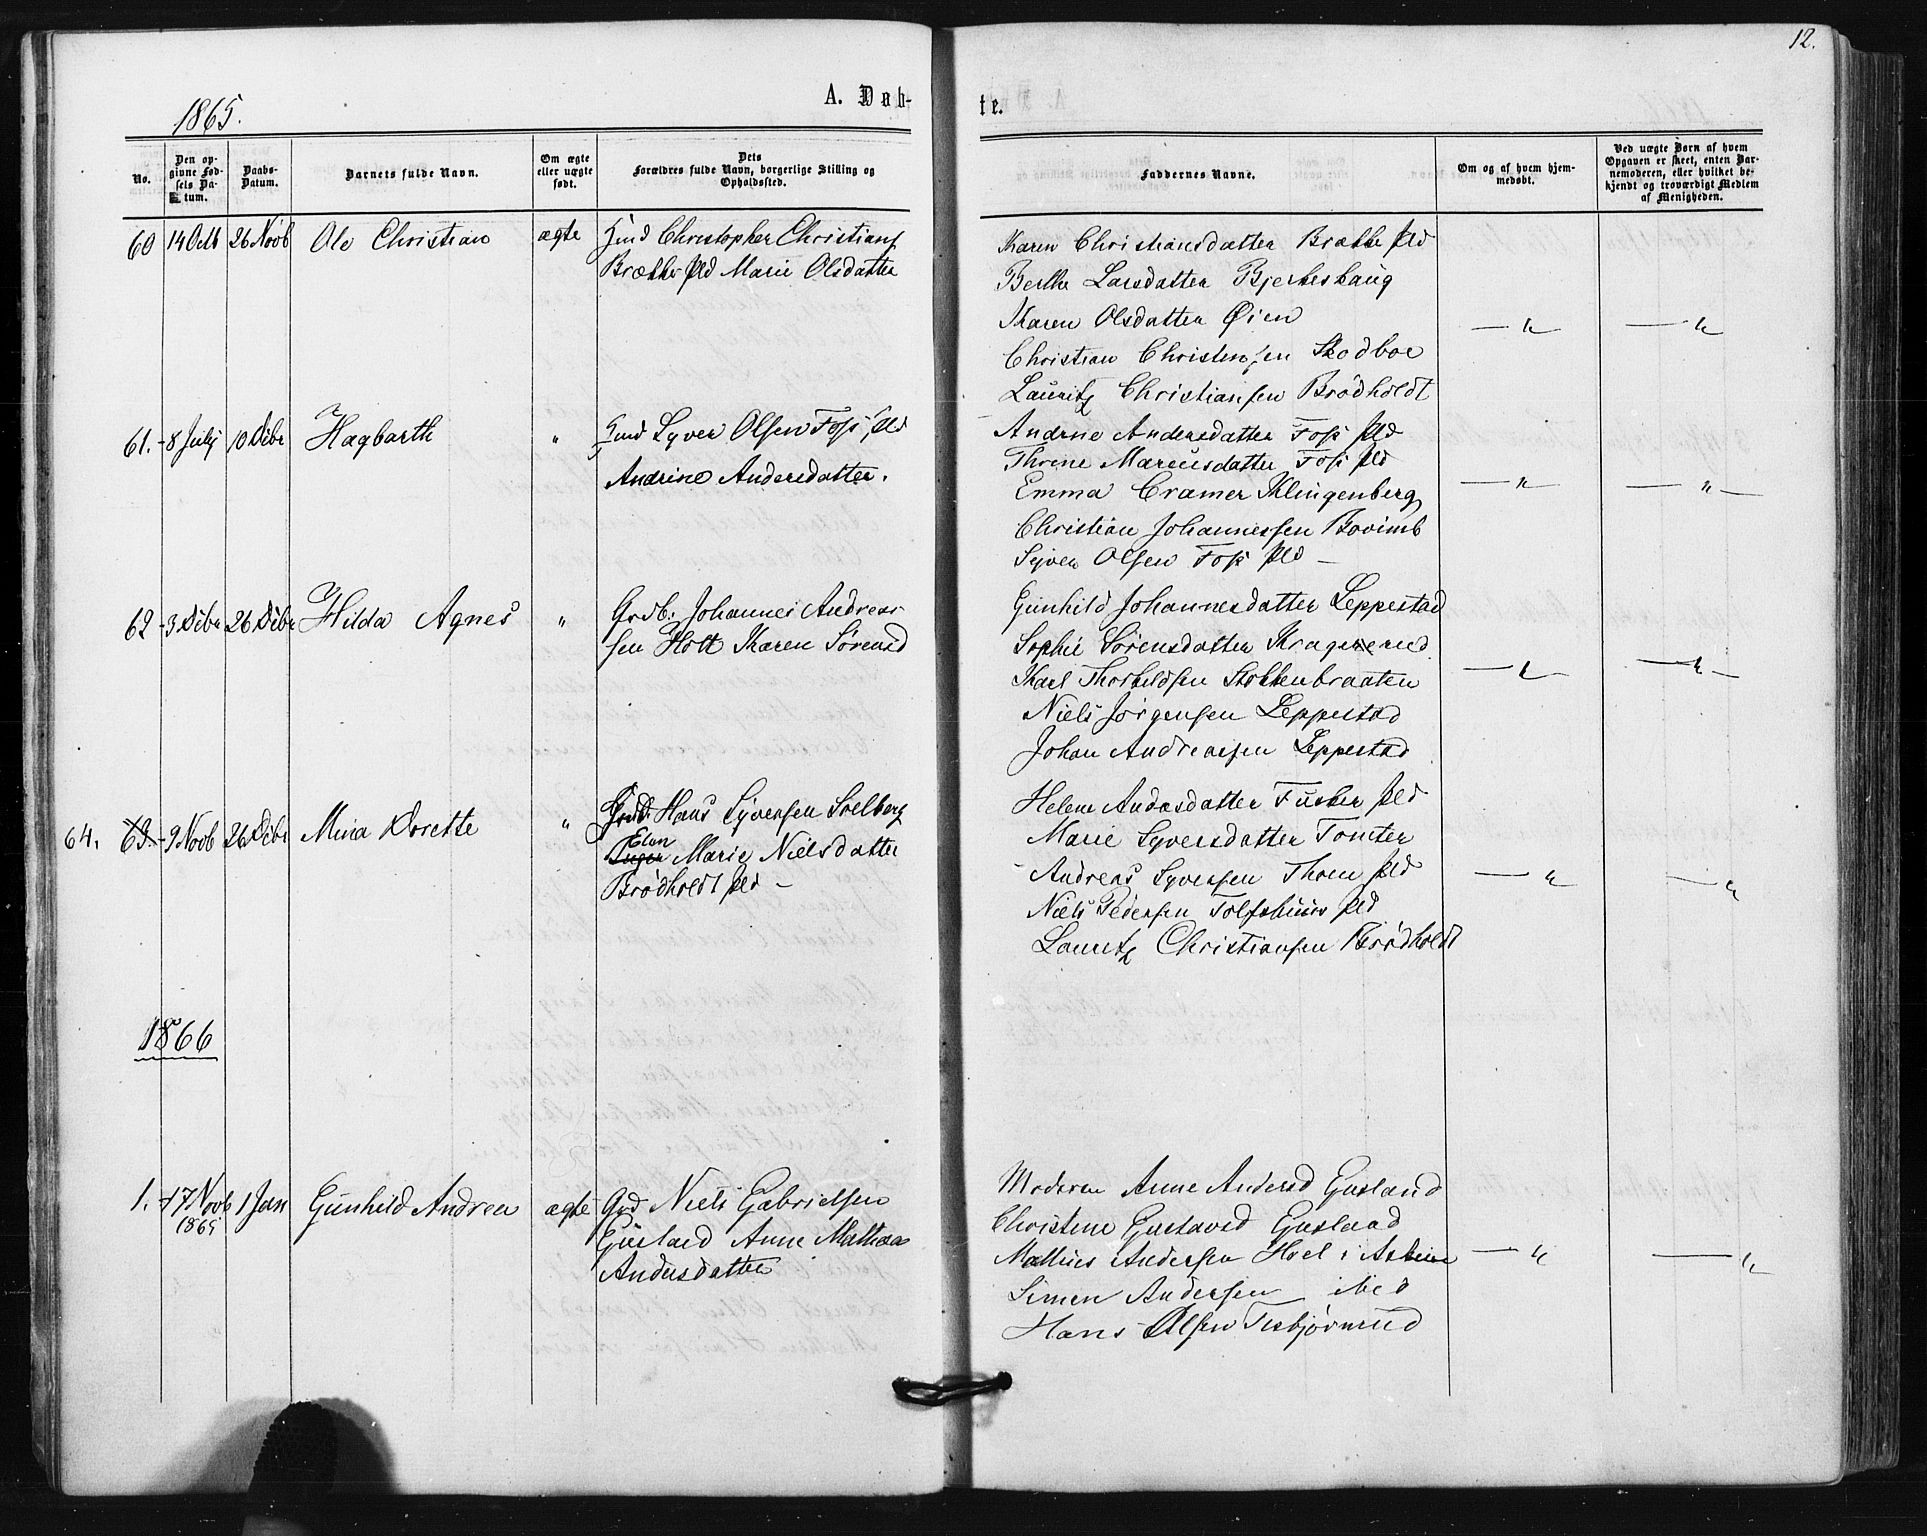 12.
1865.
A. Døb-
te.
No.
Den op-
givne Fød-
sels Da-
tum.
Daabs-
Datum.
Barnets fulde Navn.
Om ægte
eller uægte
født.
Dets
Forældres fulde Navn, borgerlige Stilling og
Opholdssted.
Faddernes Navne.
Om og af hvem hjem-
medøbt.
Ved uægte Børn af hvem
Opgaven er skeet, enten Bar-
nemoderen, eller hvilket be-
kjendt og troværdigt Medlem
af Menigheden.
60 14 Octb 26 Novb Ole Christian ægte Christopher Christians
Brække pld Marie Olsdatter
Karen Christiansdatter Brække pld
Berthe Larsdatter Bjerkeshaug
Karen Olsdatter Øien
Christian Christensen Skodboe
Lauritz Christiansen Brødholdt
61. 8 Julj 10 Debr Hagbarth " Syver Olsen Foss pld
Andrine Andersdatter.
Andrne Andersdatter Foss pld
Thrine Marcusdatter Foss pld
Emma Cramer Klingenberg
Christian Johannessen
Syver Olsen Foss pld —
62 3 Debr 26 Debr Hilda Agnes " Grdb. Johannes Andreas-
sen Holt Karen Sørensd
Gunhild Johannesdatter Leppestad
Sophie Sørensdatter Kragerud
Karl Thorkildsen Stokkenbraaten
Niels Jørgensen Leppestad
Johan Andreassen Leppestad
64. 63. 9 Novb 26 Debr Mina Dorette " Hans Syversen Solberg
Elen
Inger Marie Nielsdatter
Brødholdt pld —
Helene Andersdatter pld
Marie Syversdatter Tomter
Andreas Syversen Thoen pld
Niels Pedersen pld
Lauritz Christiansen Brødholdt
1866
1. 17 Novb 1 Jan Gunhild Andrea ægte Grd Niels Gabrielsen
1865
Gusland Anne Mathea
Andersdatter
Moderen Anne Andersd Gusland
Christine Gustavsd Gusland
Mathias Andersen Hoel i Askim
Simen Andersen ibid
Hans Olsen Tesbjørnrud